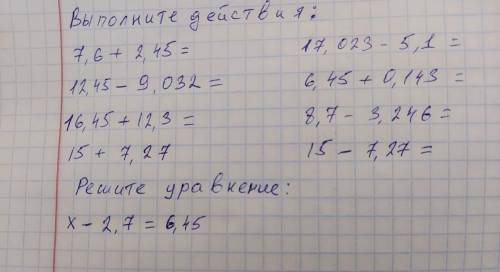 Выполните действия:
7,6 + 2,45 =
17,023 - 5,1 =
12,45 - 9,032 =
6,45 + 0,143 =
16,45 + 12,3 =
8,7 - 3,246 =
15 + 7,27
15 - 7,27 =
Решите уравнение:
x - 2,7 = 6,45